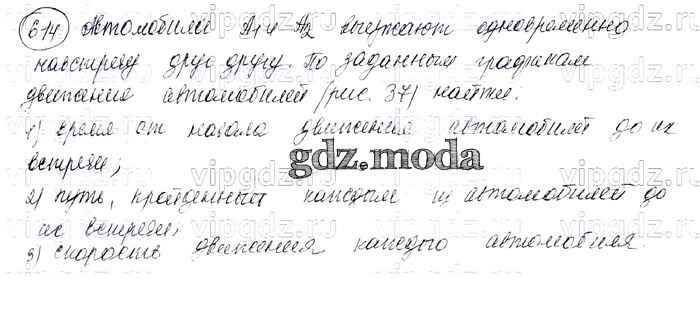 614 Автомобили А₁ и А₂ выезжают одновременно
навстречу друг другу. По заданным графикам
движения автомобилей (рис. 37) найти:
1) время от начала движения автомобилей до их
встречи;
gdz.moda
2) путь, пройденный каждым из автомобилей до
их встречи;
3) скорость движения каждого автомобиля.
vipgdz.ru